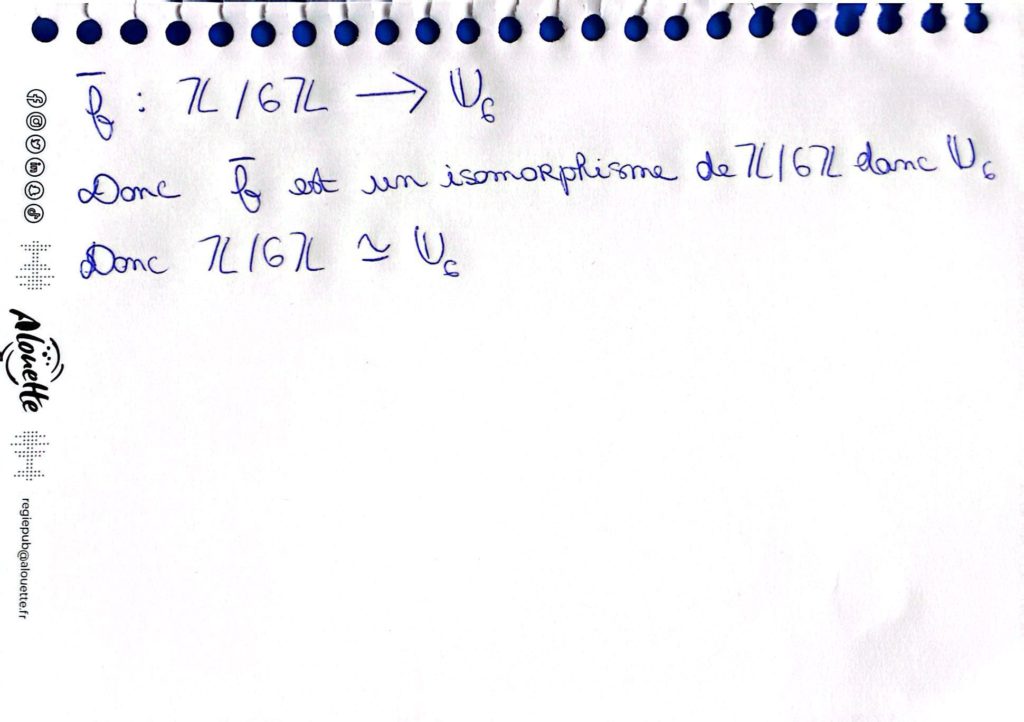 f̄ : ℤ/6ℤ → 𝕌₆
Donc f̄ est un isomorphisme de ℤ/6ℤ danc 𝕌₆
Donc ℤ/6ℤ ≃ 𝕌₆
Alouette
regiepub@alouette.fr